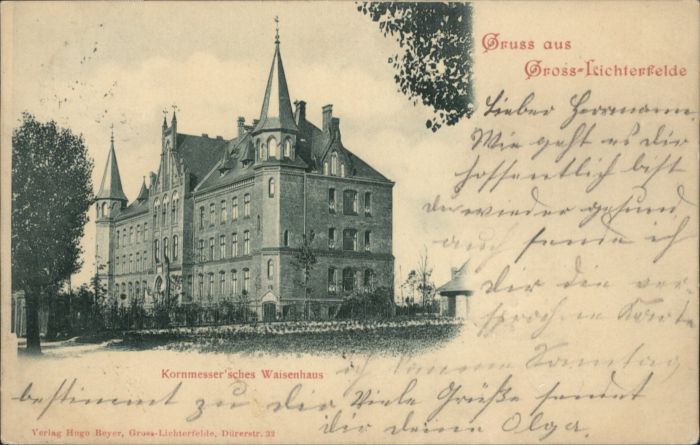 Gruss aus
Gross-Lichterfelde
Lieber Herrmann.
Wie geht es dir
hoffentlich bist
du wieder gesund
auch sende ich
Dir die ver-
sprochne Karte
ich komme Sonntag
bestimmt zu dir Viele Grüße sendet
dir deine Olga
Kornmesser'sches Waisenhaus
Verlag Hugo Beyer, Gross-Lichterfelde, Dürerstr. 32